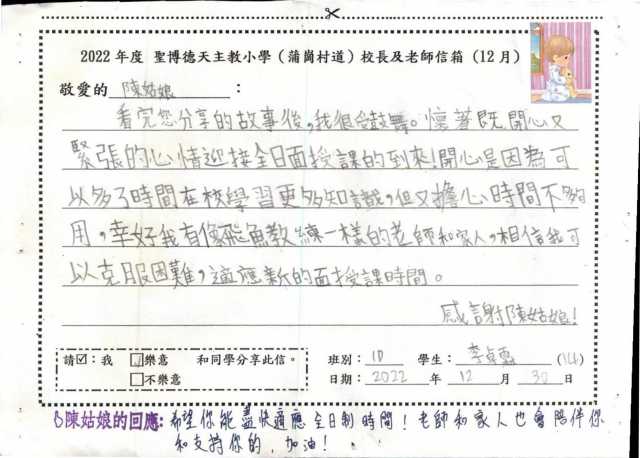 2022 年度 聖博德天主教小學（蒲崗村道）校長及老師信箱（12 月）
敬愛的 陳姑娘 ：
看完您分享的故事後，我很受鼓舞。懷著既開心又
緊張的心情迎接全日面授課的到來！開心是因為可
以多了時間在校學習更多知識，但又擔心時間不夠
用，幸好我有像飛魚教練一樣的老師和家人，相信我可
以克服困難，適應新的面授課時間。
感謝陳姑娘！
請☑：我 □樂意 和同學分享此信。
□不樂意
班別： 1D 學生： 李卓 (14)
日期： 2022 年 12 月 30 日
陳姑娘的回應: 希望你能盡快適應全日制時間！老師和家人也會陪伴你
和支持你的，加油！